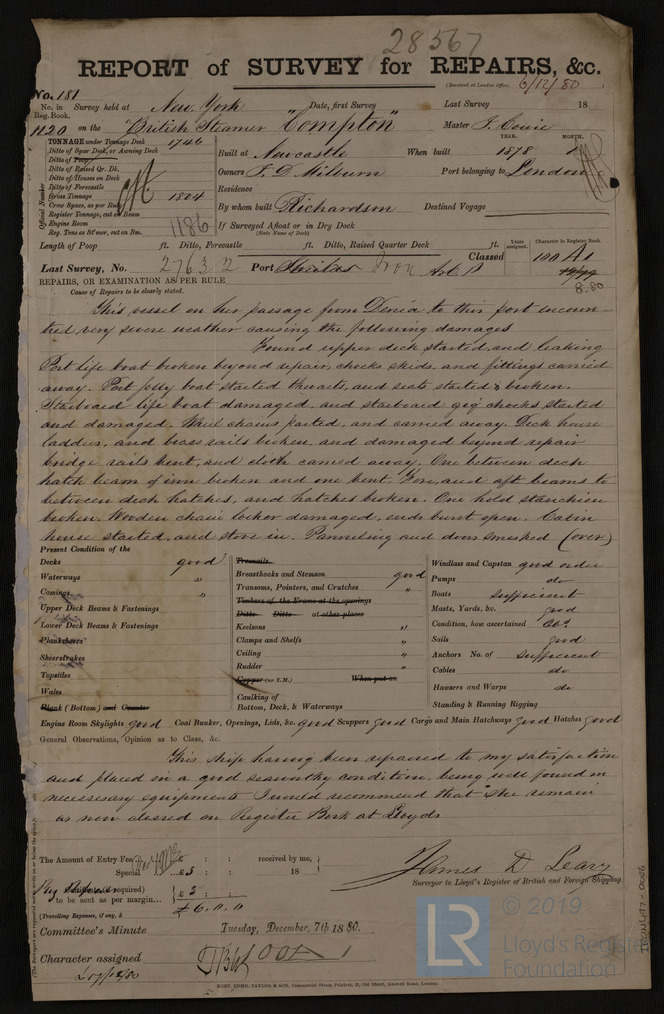 28567
REPORT of SURVEY for REPAIRS, &c.
(Received at London Office, 6/12/80
No. 181
No. in Reg. Book. Survey held at New York Date, first Survey " Last Survey 18
1120 on the British Steamer "Compton" Master J. Cowie
TONNAGE under Tonnage Deck 1746
Ditto of Spar Deck, or Awning Deck
Ditto of Poop
Ditto of Raised Qr. Dk.
Ditto of Houses on Deck
Ditto of Forecastle
Gross Tonnage 1804
Crew Space, as per Rule
Register Tonnage, cut on Beam
Engine Room
Reg. Tons as Str., cut on Bm. 1186
Official Number
YEAR. MONTH.
Built at Newcastle When built 1878
Owners J. D. Milburn Port belonging to London
Residence
By whom built Richardson Destined Voyage
If Surveyed Afloat or in Dry Dock
(State Name of Dock)
Length of Poop ft. Ditto, Forecastle ft. Ditto, Raised Quarter Deck ft.
Classed Years assigned. Character in Register Book 100 A1
Last Survey, No. 27632 Port Iron
8.80
REPAIRS, OR EXAMINATION AS PER RULE
Cause of Repairs to be clearly stated.
This vessel on her passage from Denia to this port encoun-
tred very severe weather causing the following damages
Found upper deck started, and leaking
Port life boat broken beyond repair, chocks skids, and fittings carried
away. Port jolly boat started thwarts, and seats started & broken.
Starboard life boat damaged, and starboard gig chocks started
and damaged. Wheel chains parted, and carried away. Deck house
ladders, and brass rails broken, and damaged beyond repair
bridge rails bent, and cloth carried away. One between deck
hatch beam of iron broken and one bent. Fore, and aft beams to
between deck hatches, and hatches broken. One hold stanchion
broken. Wooden chain locker damaged, ends burst open. Cabin
house started, and stove in. Panneling and doors smashed (over)
Present Condition of the
Decks good
Waterways "
Comings "
Upper Deck Beams & Fastenings
Lower Deck Beams & Fastenings
Planksheers
Sheerstrakes
Topsides
Wales
Plank (Bottom) and Counter
Treenails
Breasthooks and Stemson good
Transoms, Pointers, and Crutches "
Timbers of the Frame at the openings
Ditto Ditto at other places
Keelsons "
Clamps and Shelfs "
Ceiling "
Rudder "
Copper (or Y.M.) When put on
Caulking of
Bottom, Deck, & Waterways
Windlass and Capstan good order
Pumps do
Boats sufficient
Masts, Yards, &c. good
Condition, how ascertained
Sails good
Anchors No. of sufficient
Cables do
Hawsers and Warps do
Standing & Running Rigging
Engine Room Skylights good Coal Bunker, Openings, Lids, &c. good Scuppers good Cargo and Main Hatchways good Hatches good
General Observations, Opinion as to Class, &c.
This ship having been repaired to my satisfaction
and placed in a good seaworthy condition, being well found in
necessary equipments I would recommend that she remain
as now classed on Register Book at Lloyds
The Amount of Entry Fee £ : : received by me,
Special £3 : : 18
(if required) £3 : :
to be sent as per margin...
(Travelling Expenses, if any, £ £6.0.0
James D. Leary
Surveyor to Lloyd's Register of British and Foreign Shipping.
Committee's Minute Tuesday, December, 7th 1880.
Character assigned 100A1
© 2019
LR
Lloyd's Register
Foundation
IRON497-0026